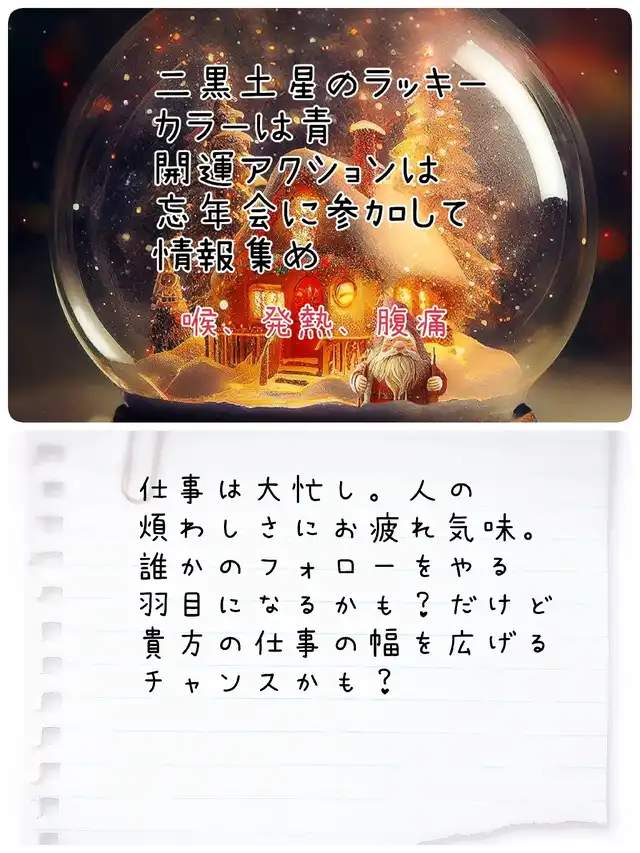 二黒土星のラッキー
カラーは青
開運アクションは
忘年会に参加して
情報集め
喉、発熱、腹痛
仕事は大忙し。人の
煩わしさにお疲れ気味。
誰かのフォローをやる
羽目になるかも?だけど
貴方の仕事の幅を広げる
チャンスかも?